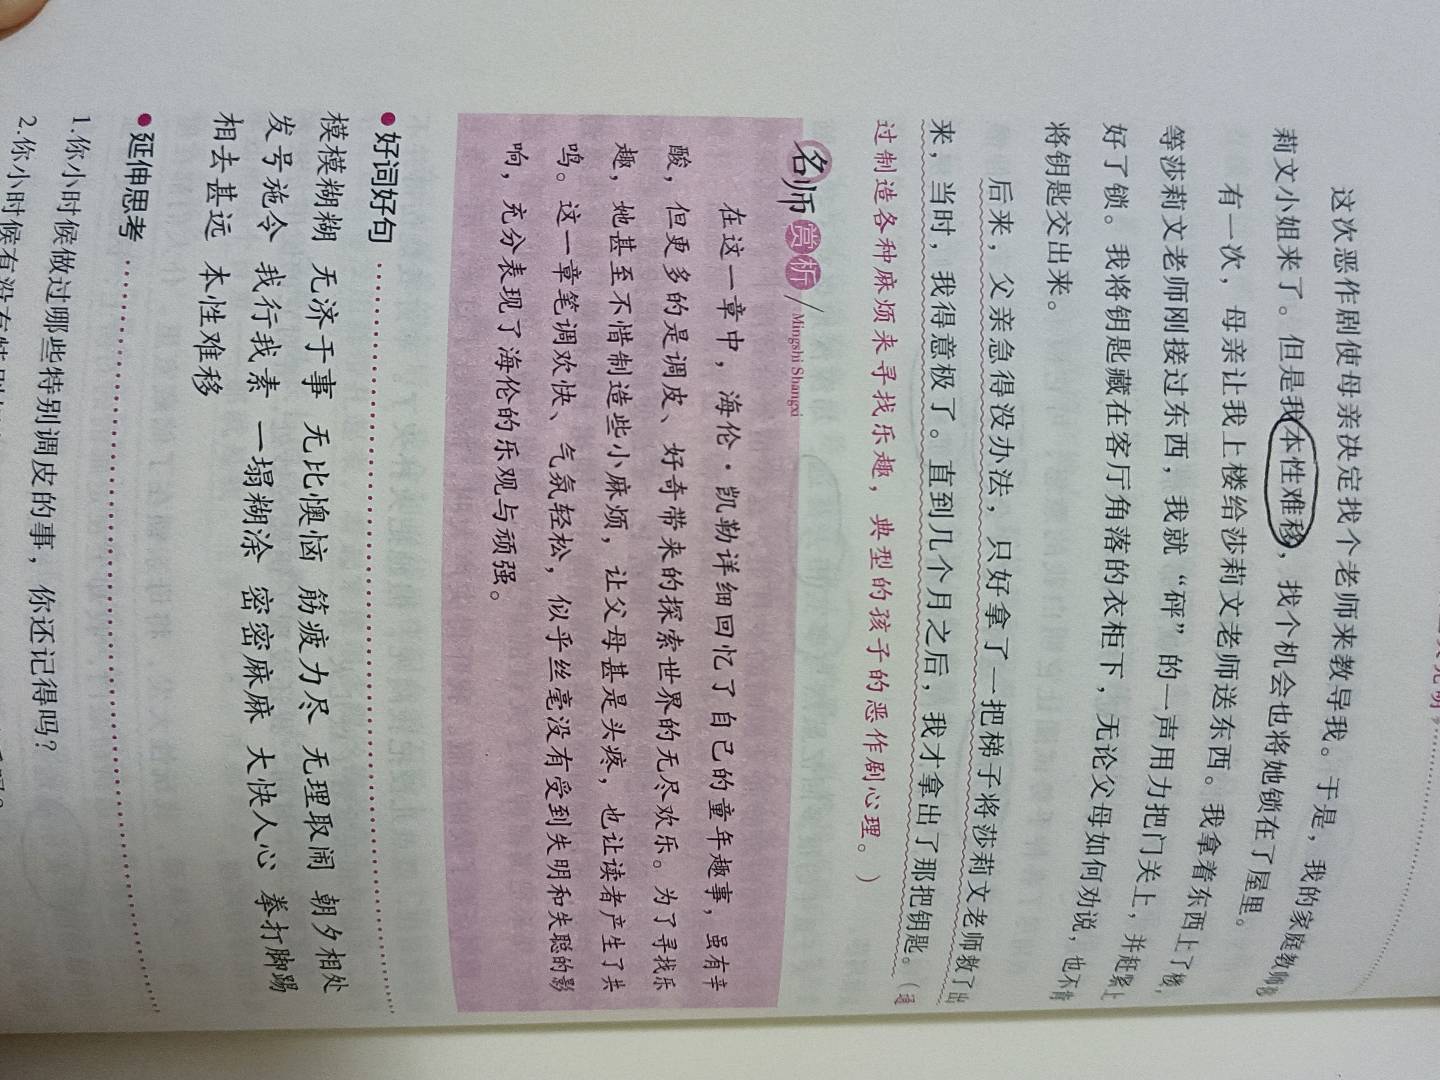 这次恶作剧使母亲决定找个老师来教导我。于是，我的家庭教师莎
莉文小姐来了。但是我本性难移，找个机会也将她锁在了屋里。
有一次，母亲让我上楼给莎莉文老师送东西。我拿着东西上了楼，
等莎莉文老师刚接过东西，我就“砰”的一声用力把门关上，并赶紧上
好了锁。我将钥匙藏在客厅角落的衣柜下，无论父母如何劝说，也不肯
将钥匙交出来。
后来，父亲急得没办法，只好拿了一把梯子将莎莉文老师救了出
来，当时，我得意极了。直到几个月之后，我才拿出了那把钥匙。（通
过制造各种麻烦来寻找乐趣，典型的孩子的恶作剧心理。）
名师赏析 Mingshi Shangxi
在这一章中，海伦·凯勒详细回忆了自己的童年趣事，虽有辛
酸，但更多的是调皮、好奇带来的探索世界的无尽欢乐。为了寻找乐
趣，她甚至不惜制造些小麻烦，让父母甚是头疼，也让读者产生了共
鸣。这一章笔调欢快、气氛轻松，似乎丝毫没有受到失明和失聪的影
响，充分表现了海伦的乐观与顽强。
●好词好句
模模糊糊 无济于事 无比懊恼 筋疲力尽 无理取闹 朝夕相处
发号施令 我行我素 一塌糊涂 密密麻麻 大快人心 拳打脚踢
相去甚远 本性难移
●延伸思考
1.你小时候做过哪些特别调皮的事，你还记得吗？
2.你小时候有没有特别